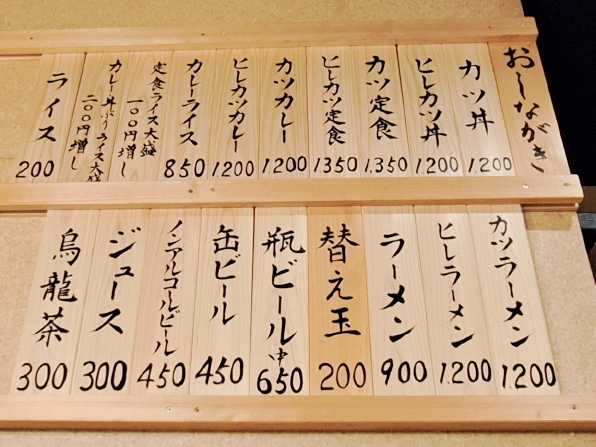 おしながき
カツ丼
1.200
ヒレカツ丼
1.200
カツ定食
1.350
ヒレカツ定食
1350
カツカレー
1200
ヒレカツカレー
1200
カレーライス
850
定食ライス大盛
一〇〇円増し
カレー丼ぶりライス大盛
二〇〇円増し
ライス
200
カツラーメン
1.200
ヒレラーメン
1.200
ラーメン
900
替え玉
200
瓶ビール中
650
缶ビール
450
ノンアルコールビール
450
ジュース
300
烏龍茶
300